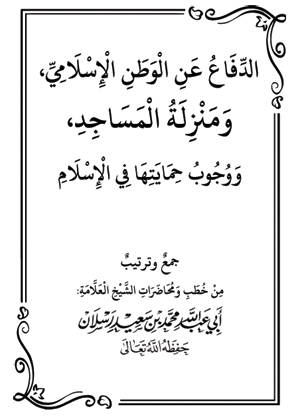 الدِّفَاعُ عَنِ الْوَطَنِ الْإِسْلَامِيِّ،
وَمَنْزِلَةُ الْمَسَاجِدِ،
وَوُجُوبُ حِمَايَتِهَا فِي الْإِسْلَامِ
جمعٌ وترتيبٌ
مِنْ خُطَبِ وَمُحَاضَرَاتِ الشَّيْخِ الْعَلَّامَةِ:
أَبِي عَبْدِ اللَّهِ مُحَمَّدِ بْنِ سَعِيدِ رَسْلَانَ
حَفِظَهُ اللَّهُ تَعَالَى